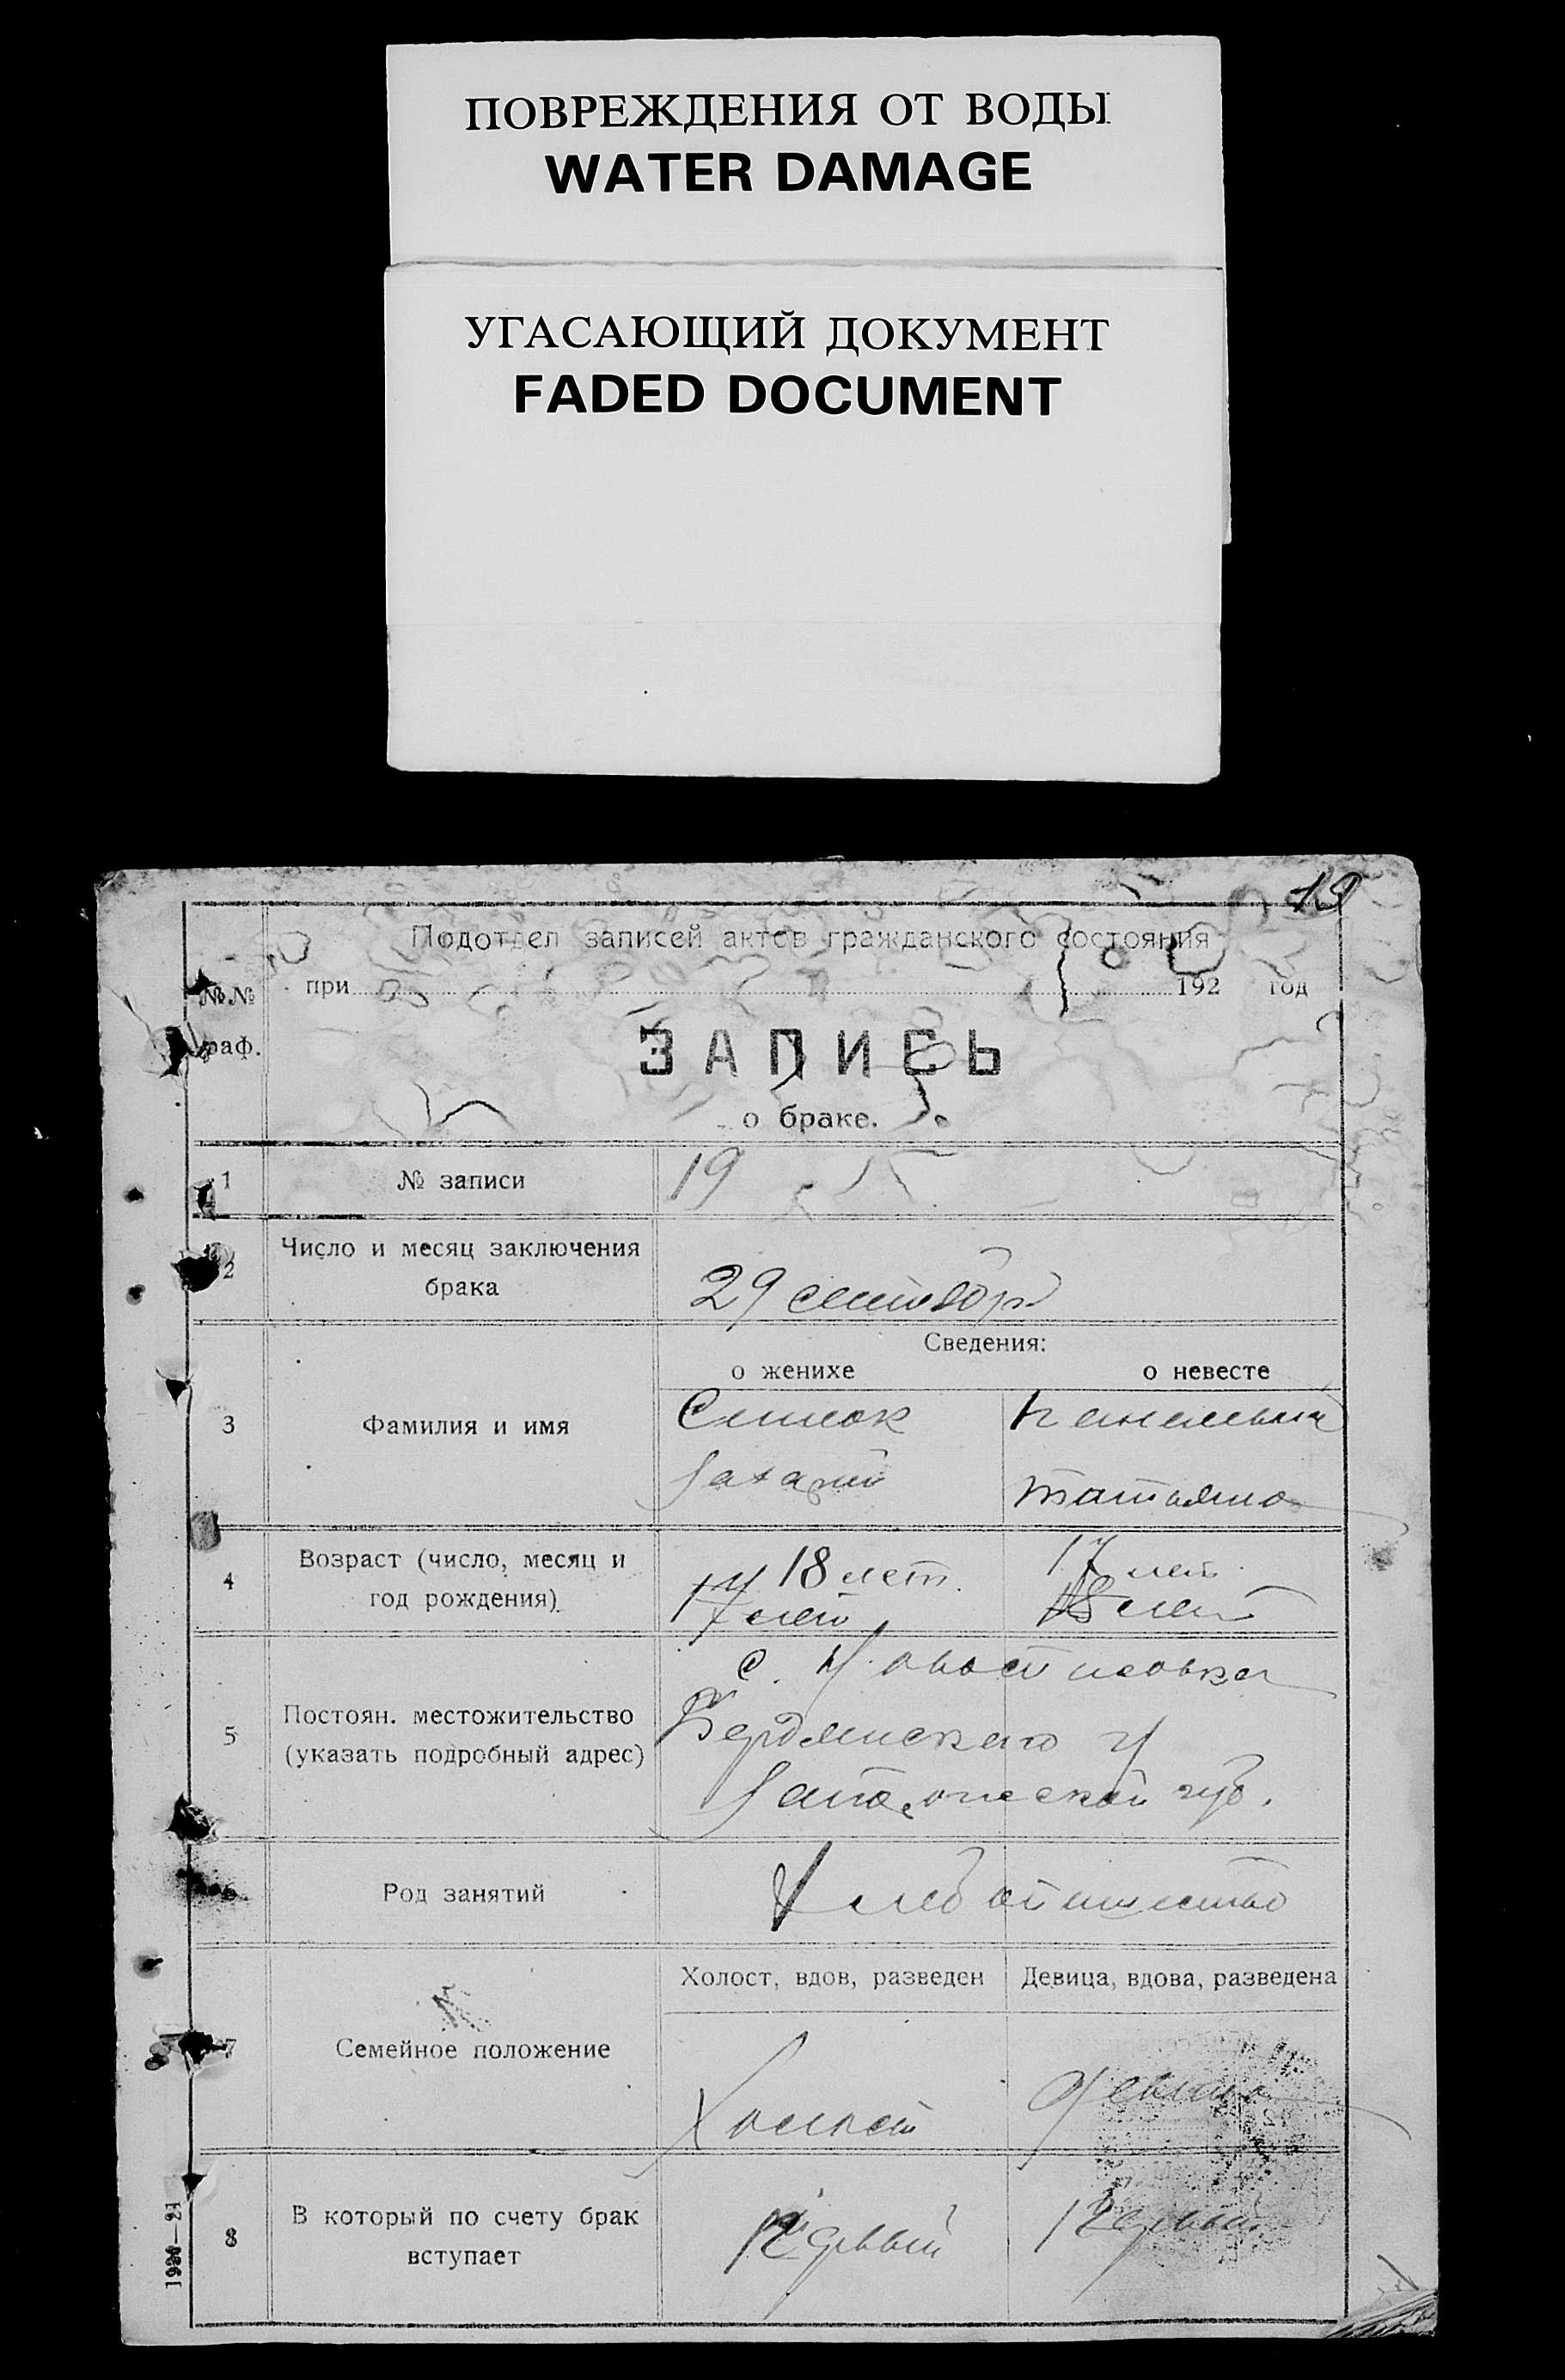 ПОВРЕЖДЕНИЯ ОТ ВОДЫ
WATER DAMAGE
УГАСАЮЩИЙ ДОКУМЕНТ
FADED DOCUMENT
19
Подотдел записей актов гражданского состояния
№№ раф.
при 192 год
ЗАПИСЬ
о браке.
1 № записи 19
2 Число и месяц заключения брака
29 сентября
Сведения:
о женихе о невесте
3 Фамилия и имя
Захарий Татьяна
4 Возраст (число, месяц и год рождения)
18 лет. 17 лет.
17 лет 18 лет
5 Постоян. местожительство (указать подробный адрес)
с.
Бердянского у
Запорожской губ.
Род занятий
Хлебопашество
Холост, вдов, разведен Девица, вдова, разведена
7 Семейное положение
Холост Девица
8 В который по счету брак вступает
Первый Первый
1920—21